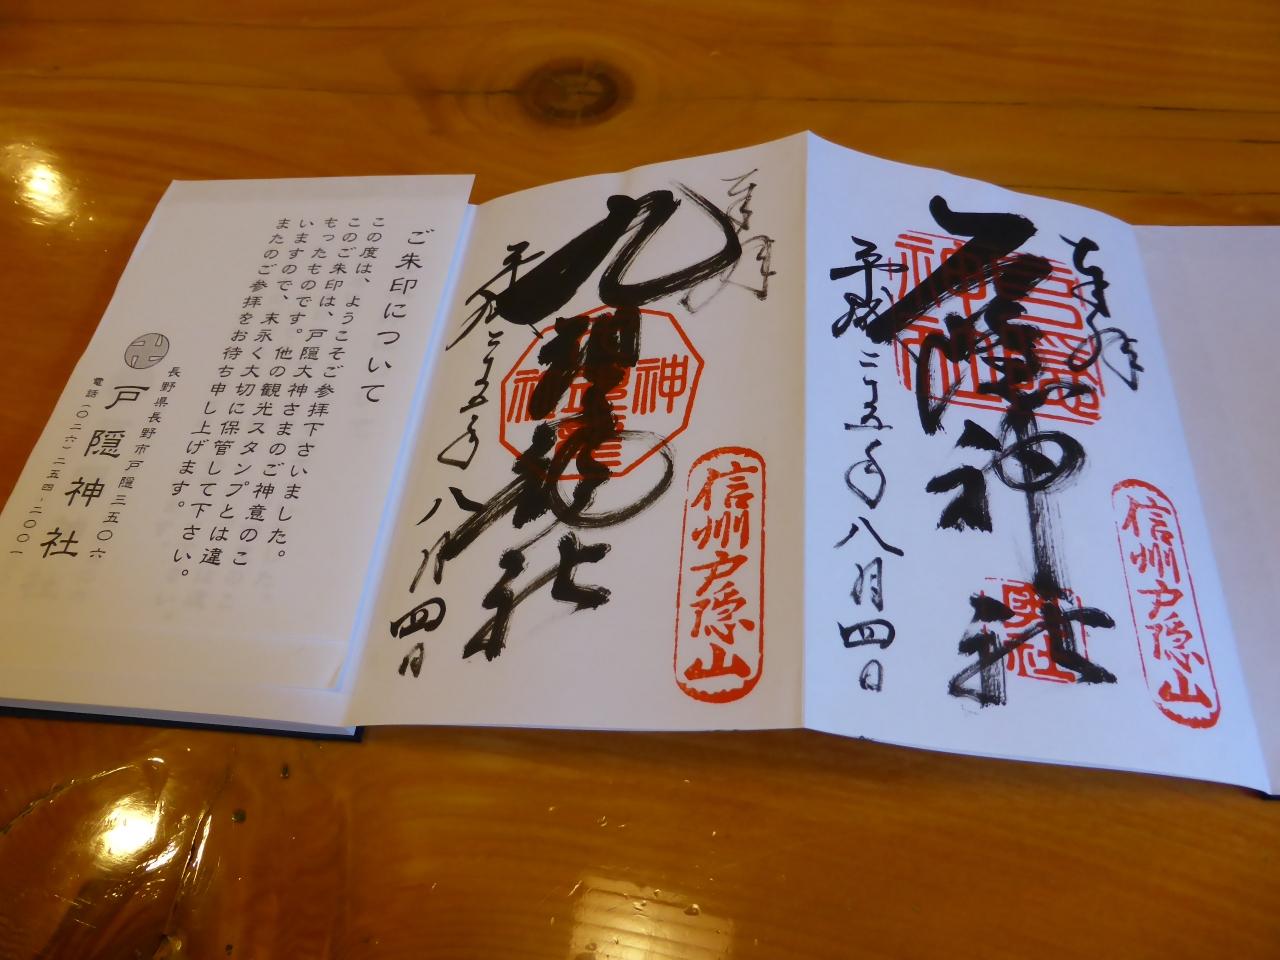 奉拝
戸隠神社
戸隠神社
奥社
信州戸隠山
平成二十五年八月四日
奉拝
九頭龍社
九頭龍神社
信州戸隠山
平成二十五年八月四日
ご朱印について
この度は、ようこそご参拝下さいました。
このご朱印は、戸隠大神さまのご神意のこ
もったものです。他の観光スタンプとは違
いますので、末永く大切に保管して下さい。
またのご参拝をお待ち申し上げます。
長野県長野市戸隠三五〇六
戸隠神社
電話(〇二六)二五四-二〇〇一